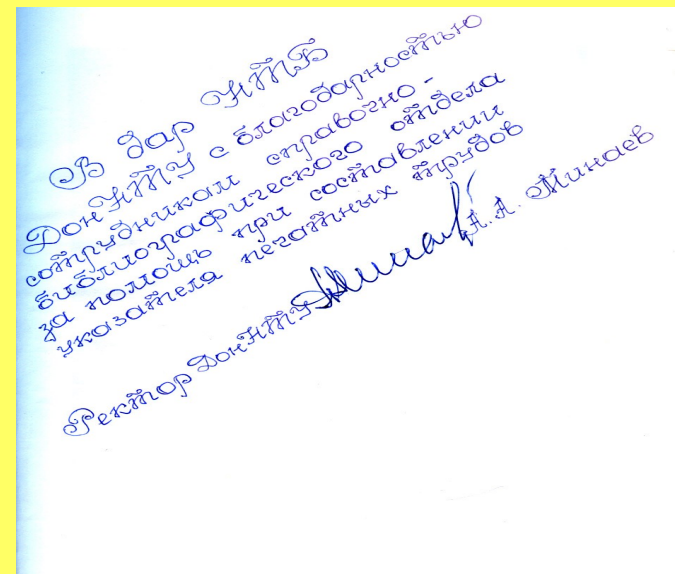 В дар НТБ
ДонНТУ с благодарностью
сотрудникам справочно-
библиографического отдела
за помощь при составлении
указателя печатных трудов
Ректор ДонНТУ А.А. Минаев